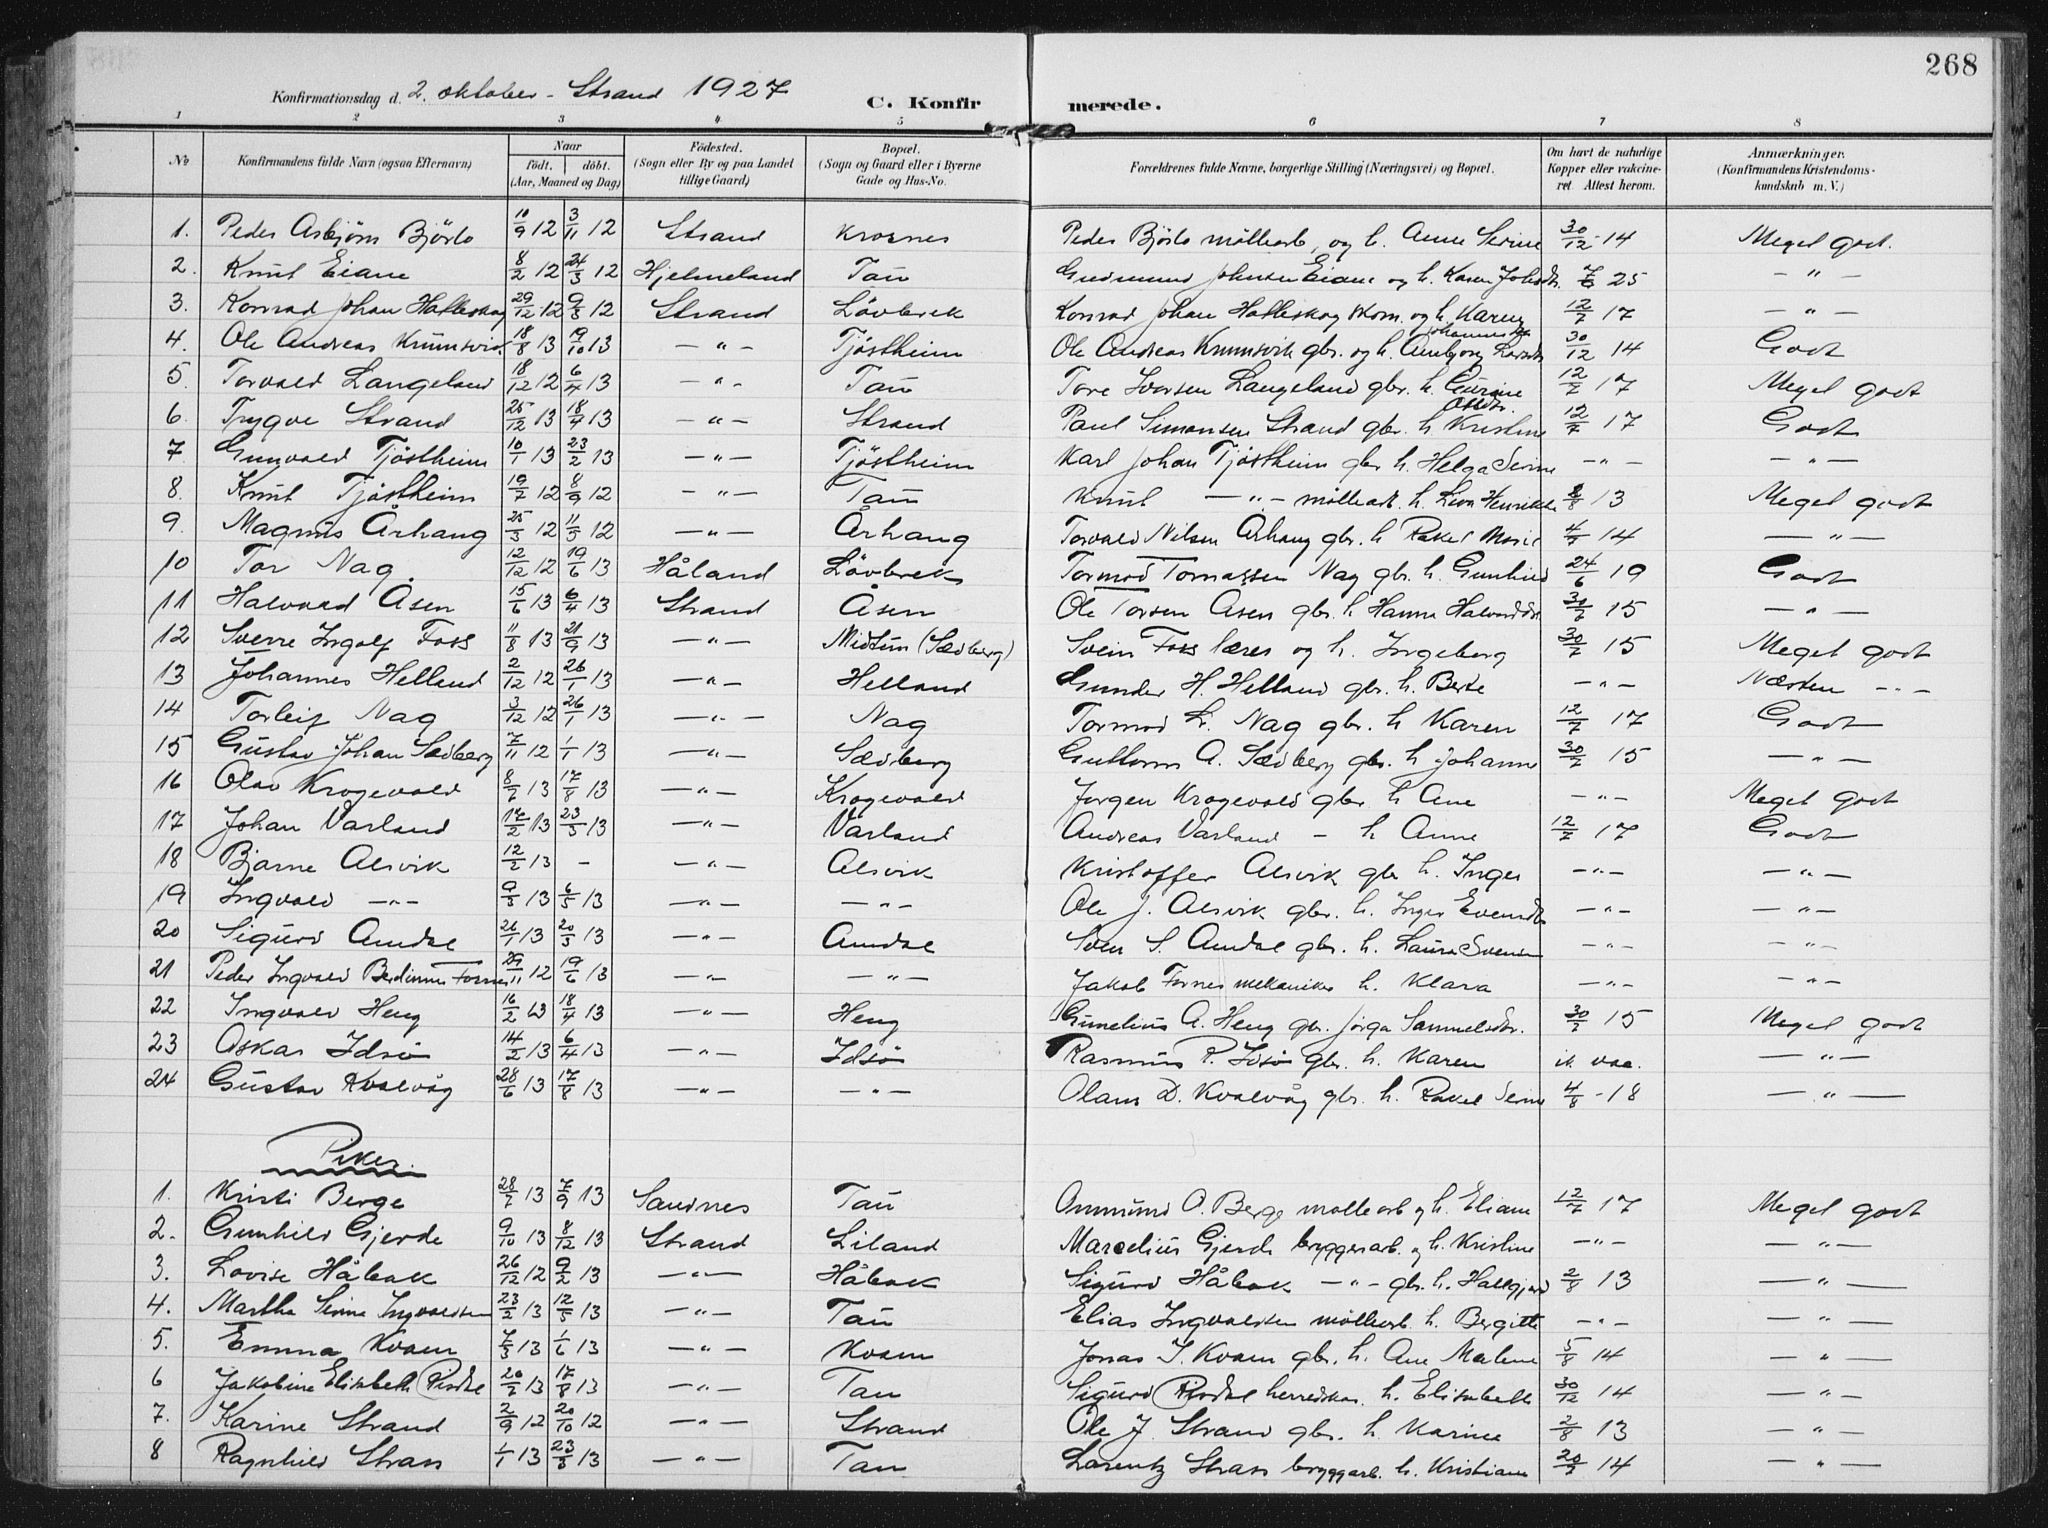 268
Konfirmationsdag d. 2. oktober - Strand 1927 C. Konfirmerede.
1 2 3 4 5 6 7 8
No Konfirmandens fulde Navn (ogsaa Efternavn) Naar født. døbt. (Aar, Maaned og Dag) Fødested. (Sogn eller By og paa Landet tillige Gaard) Bopæl. (Sogn og Gaard eller i Byerne Gade og Hus-No. Forældrenes fulde Navne, borgerlige Stilling (Næringsvei) og Bopæl. Om havt de naturlige Kopper eller vakcineret Attest herom. Anmærkninger. (Konfirmandens Kristendomskundskab m. V.)
1. Peder Asbjørn Bjørlo 10/9 12 3/11 12 Strand Krosnes Peder Bjørlo møllearb. og h. Anne Serine 30/12 - 14 Meget godt.
2. Knut Eiane 8/2 12 24/3 12 Hjelmeland Tau Gudmund Johnsen Eiane og h. Karen 25 - " -
3. Konrad Johan Hatleskog 29/12 12 12 Strand Løvbrek Konrad Johan Hatleskog skom. og h. Karen 12/7 17 - " -
4. Ole Andreas Krunsvik 18/8 13 19/10 13 - " - Tjøstheim Ole Andreas Krunsvik gbr. og h. 30/12 14 Godt
5. Torvald Langeland 18/12 12 6/4 13 - " - Tau Tore Iversen Langeland gbr. h. Gurine 12/7 17 Meget godt
6. Trygve Strand 25/12 13 18/4 13 - " - Strand Paul Simonsen Strand gbr. h. Kristine 12/7 17 Godt
7. Gunvald Tjøstheim 10/1 13 23/2 13 - " - Tjøstheim Karl Johan Tjøstheim gbr h. Helga Serine - " - - " -
8. Knut Tjøstheim 19/7 12 8/9 12 - " - Tau Knut - " - møllearb. h. Henrikke 13 Meget godt
9. Magnus Århaug 25/3 12 11/5 12 - " - Århaug Torvald Nilsen Århaug gbr. h Rakel Marie 14 - " -
10 Tor Nag. 12/12 12 19/6 13 Håland Løvbrek Tormod Tornassen Nag gbr. h. Gunhild 24/6 19 Godt
11 Halvard Åsen 15/6 13 6/4 13 Strand Åsen Ole Torsen Åsen gbr. h Hanna 15 - " -
12 Sverre Ingolf Foss 11/8 13 21/9 13 - " - Midtun (Sædberg) Svein Foss lærer og h. Ingeborg 30/7 15 Meget godt
13 Johannes Helland 2/12 12 26/1 13 - " - Helland Gunder H. Helland gbr. h. Berte - " - Næsten - " -
14 Torleif Nag 3/12 12 26/1 13 - " - Nag Tormod L. Nag gbr. h Karen 12/7 17 Godt
15 Gustav Johan Sædberg 7/11 12 1/1 13 - " - Sædberg Guttorm A. Sædberg gbr. h Johanne 30/7 15 - " -
16 Olav Krogevold 13 17/8 13 - " - Krogevold Jørgen Krogevold gbr. h Ane - " - Meget godt
17 Johan Varland 13 23/3 13 - " - Varland Andreas Varland - h Anne 12/7 17 Godt
18 Bjarne Alsvik 12/2 13 - - " - Alsvik Kristoffer Alsvik gbr h. Inger - " - - " -
19 Ingvald - " - 9/3 13 6/5 13 - " - - " - Ole J. Alsvik gbr. h. Inger - " - - " -
20 Sigurd Amdal 26/1 13 20/3 13 - " - Amdal Sven S. Amdal gbr. h. Laura - " - - " -
21 Peder Ingvald Fornes 29/11 12 19/6 13 - " - - " - Jakob Fornes mekaniker h. Klara - " - - " -
22 Ingvald Heng 16/2 13 18/4 13 - " - Heng Gunelius A. Heng gbr. Jørga Samuelsdtr. 30/7 15 Meget godt
23 Oskar Idsø 14/2 13 6/4 13 - " - Idsø Rasmus R. Idsø gbr. h. Karen ik. vac. - " -
24 Gustav Kvalvåg 28/6 13 17/8 13 - " - - " - Olaus D. Kvalvåg gbr. h. Rakel Serine 4/8 - 18 - " -
Piker.
1. Kristi Berge 28/7 13 7/9 13 Sandnes Tau Ommund O. Berge møllearb og h. Eliane 12/7 17 Meget godt
2. Gunhild Gjerde 9/10 13 8/12 13 Strand Liland Marselius Gjerde bryggeriarb. og h. Kristine - " - - " -
3. Lovise Håbak 26/12 12 9/2 13 - " - Håbak Sigurd Håbak - " - gbr. h. 2/8 13 - " -
4. Martha Serine Ingvaldsen 23/2 13 12/5 13 - " - Tau Elias Ingvaldsen møllearb. h. Bergitte - " - - " -
5. Emma Kvam 7/3 13 1/6 13 - " - Kvam Jonas I. Kvam gbr. h. Ane Malene 5/8 14 - " -
6 Jakobine Elisabeth Risdal 20/7 13 17/8 13 - " - Tau Sigurd Risdal herredskas. h. Elisabeth 30/12 14 - " -
7. Karine Strand 2/9 12 20/10 12 - " - Strand Ole J. Strand gbr. h. Karine 2/8 13 - " -
8 Ragnhild Strass 1/1 13 23/3 13 - " - Tau Lorentz Strass bryggarb. h. Kristiane 14 - " -